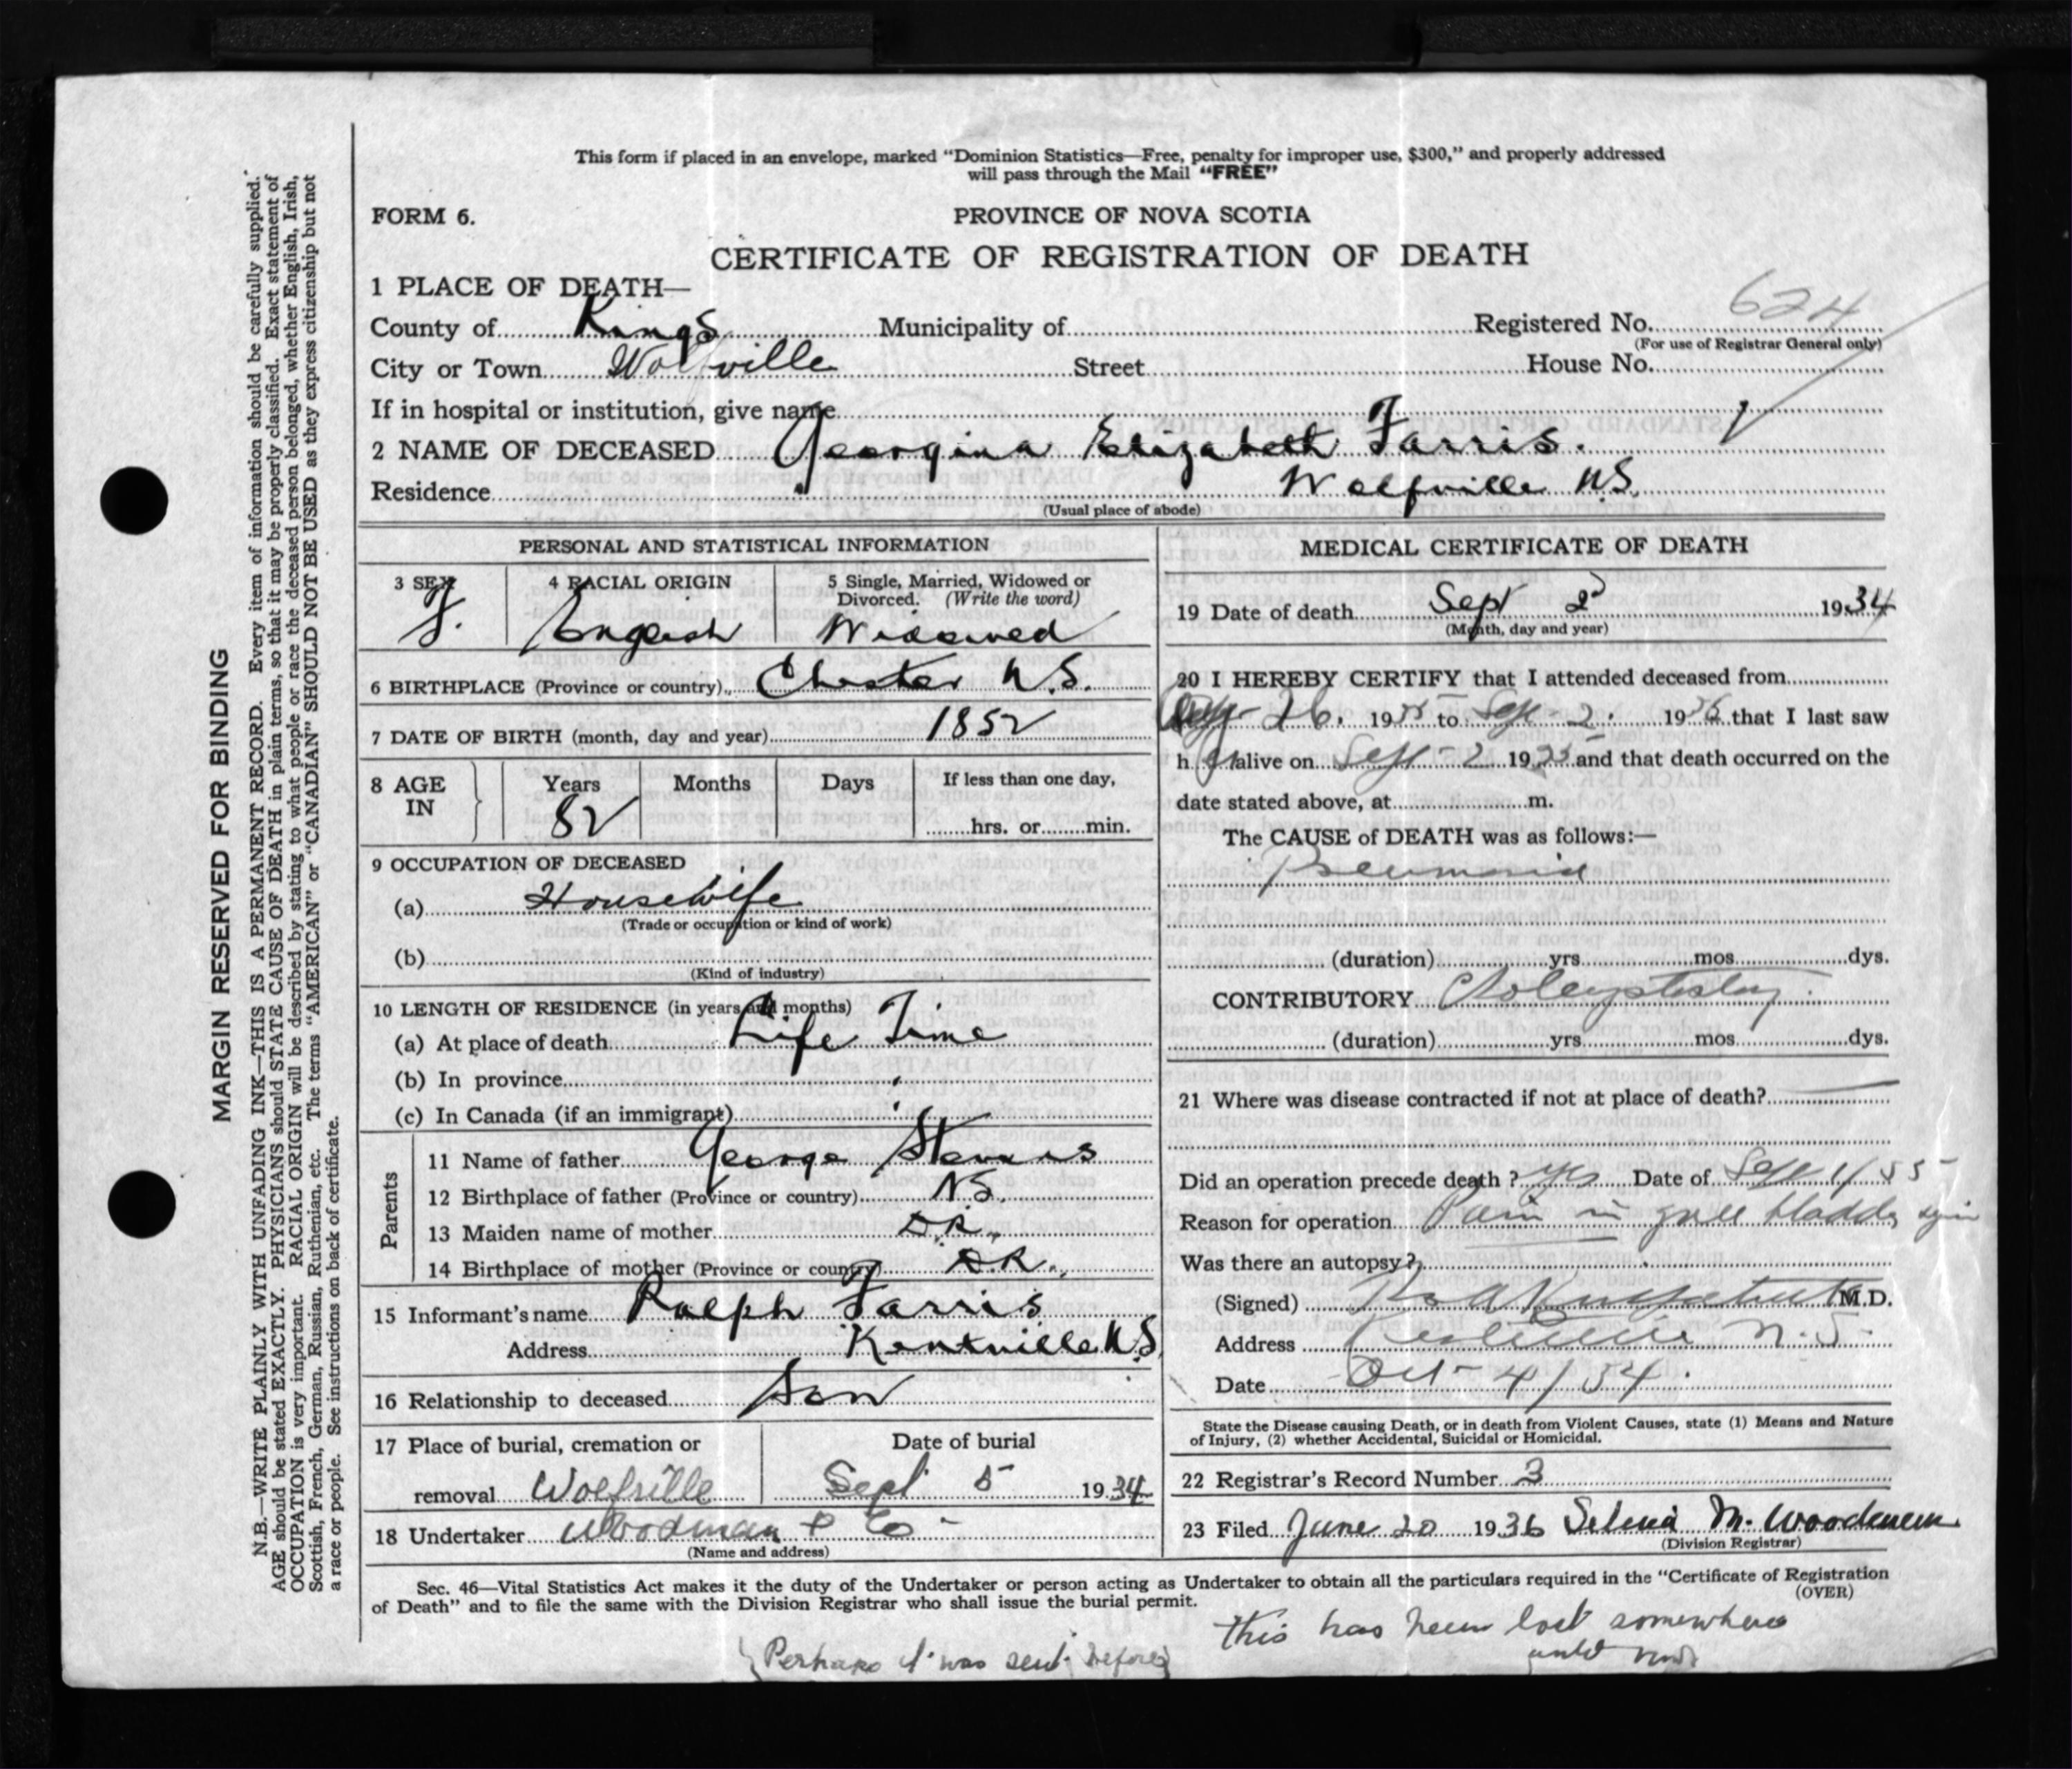 This form if placed in an envelope, marked "Dominion Statistics—Free, penalty for improper use, $300," and properly addressed
will pass through the Mail "FREE"
FORM 6.
PROVINCE OF NOVA SCOTIA
CERTIFICATE OF REGISTRATION OF DEATH
1 PLACE OF DEATH—
County of Kings Municipality of Registered No. 624
(For use of Registrar General only)
City or Town Wolfville Street House No.
If in hospital or institution, give name
2 NAME OF DECEASED Georgina Elizabeth Farris.
Residence Wolfville N.S.
(Usual place of abode)
PERSONAL AND STATISTICAL INFORMATION
3 SEX F.
4 RACIAL ORIGIN English
5 Single, Married, Widowed or
Divorced. (Write the word)
Widowed
6 BIRTHPLACE (Province or country) Chester N.S.
7 DATE OF BIRTH (month, day and year) 1852
8 AGE IN Years 82 Months Days If less than one day,
hrs. or min.
9 OCCUPATION OF DECEASED
(a) Housewife
(Trade or occupation or kind of work)
(b)
(Kind of industry)
10 LENGTH OF RESIDENCE (in years and months)
(a) At place of death Life Time
(b) In province
(c) In Canada (if an immigrant)
Parents
11 Name of father George Stevens
12 Birthplace of father (Province or country) N.S.
13 Maiden name of mother D.K.
14 Birthplace of mother (Province or country) D.K.
15 Informant's name Ralph Farris
Address Kentville N.S.
16 Relationship to deceased Son
17 Place of burial, cremation or
removal Wolfville
Date of burial
Sept 5 1934
18 Undertaker Woodman & Co
(Name and address)
MEDICAL CERTIFICATE OF DEATH
19 Date of death Sept 2 1934
(Month, day and year)
20 I HEREBY CERTIFY that I attended deceased from
26. 19 to Sep - 2. 19 that I last saw
h er alive on Sep - 2 19 and that death occurred on the
date stated above, at m.
The CAUSE of DEATH was as follows:—
Pneumonia
(duration) yrs mos dys.
CONTRIBUTORY
(duration) yrs mos dys.
21 Where was disease contracted if not at place of death?
Did an operation precede death? yes Date of Sep 1/
Reason for operation Pain in gall bladder
Was there an autopsy?
(Signed) M.D.
Address N.S.
Date Oct 4/34.
State the Disease causing Death, or in death from Violent Causes, state (1) Means and Nature
of Injury, (2) whether Accidental, Suicidal or Homicidal.
22 Registrar's Record Number 3
23 Filed June 20 1936 Selena M. Woodman
(Division Registrar)
Sec. 46—Vital Statistics Act makes it the duty of the Undertaker or person acting as Undertaker to obtain all the particulars required in the "Certificate of Registration
of Death" and to file the same with the Division Registrar who shall issue the burial permit.
(OVER)
this has been lost somewhere
until now
Perhaps it was sent before
MARGIN RESERVED FOR BINDING
N.B.—WRITE PLAINLY WITH UNFADING INK—THIS IS A PERMANENT RECORD. Every item of information should be carefully supplied.
AGE should be stated EXACTLY. PHYSICIANS should STATE CAUSE OF DEATH in plain terms, so that it may be properly classified. Exact statement of
OCCUPATION is very important. RACIAL ORIGIN will be described by stating to what people or race the deceased person belonged, whether English, Irish,
Scottish, French, German, Russian, Ruthenian, etc. The terms "AMERICAN" or "CANADIAN" SHOULD NOT BE USED as they express citizenship but not
a race or people. See instructions on back of certificate.